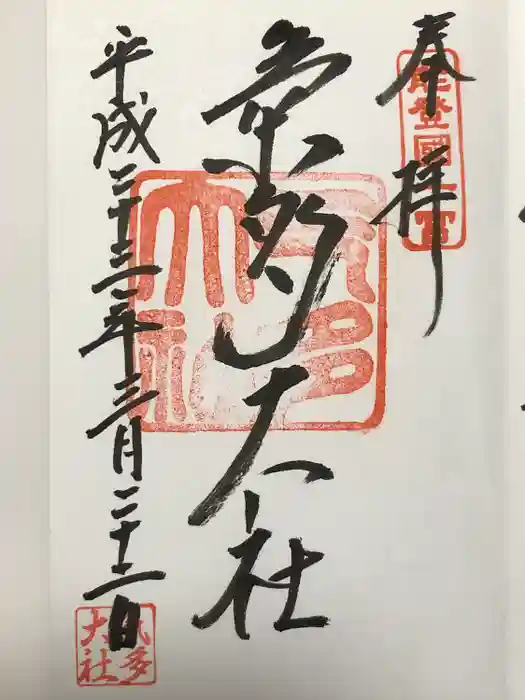 奉拝
能登國一宮
氣多大社
氣多大社
平成二十三年三月二十二日
氣多大社